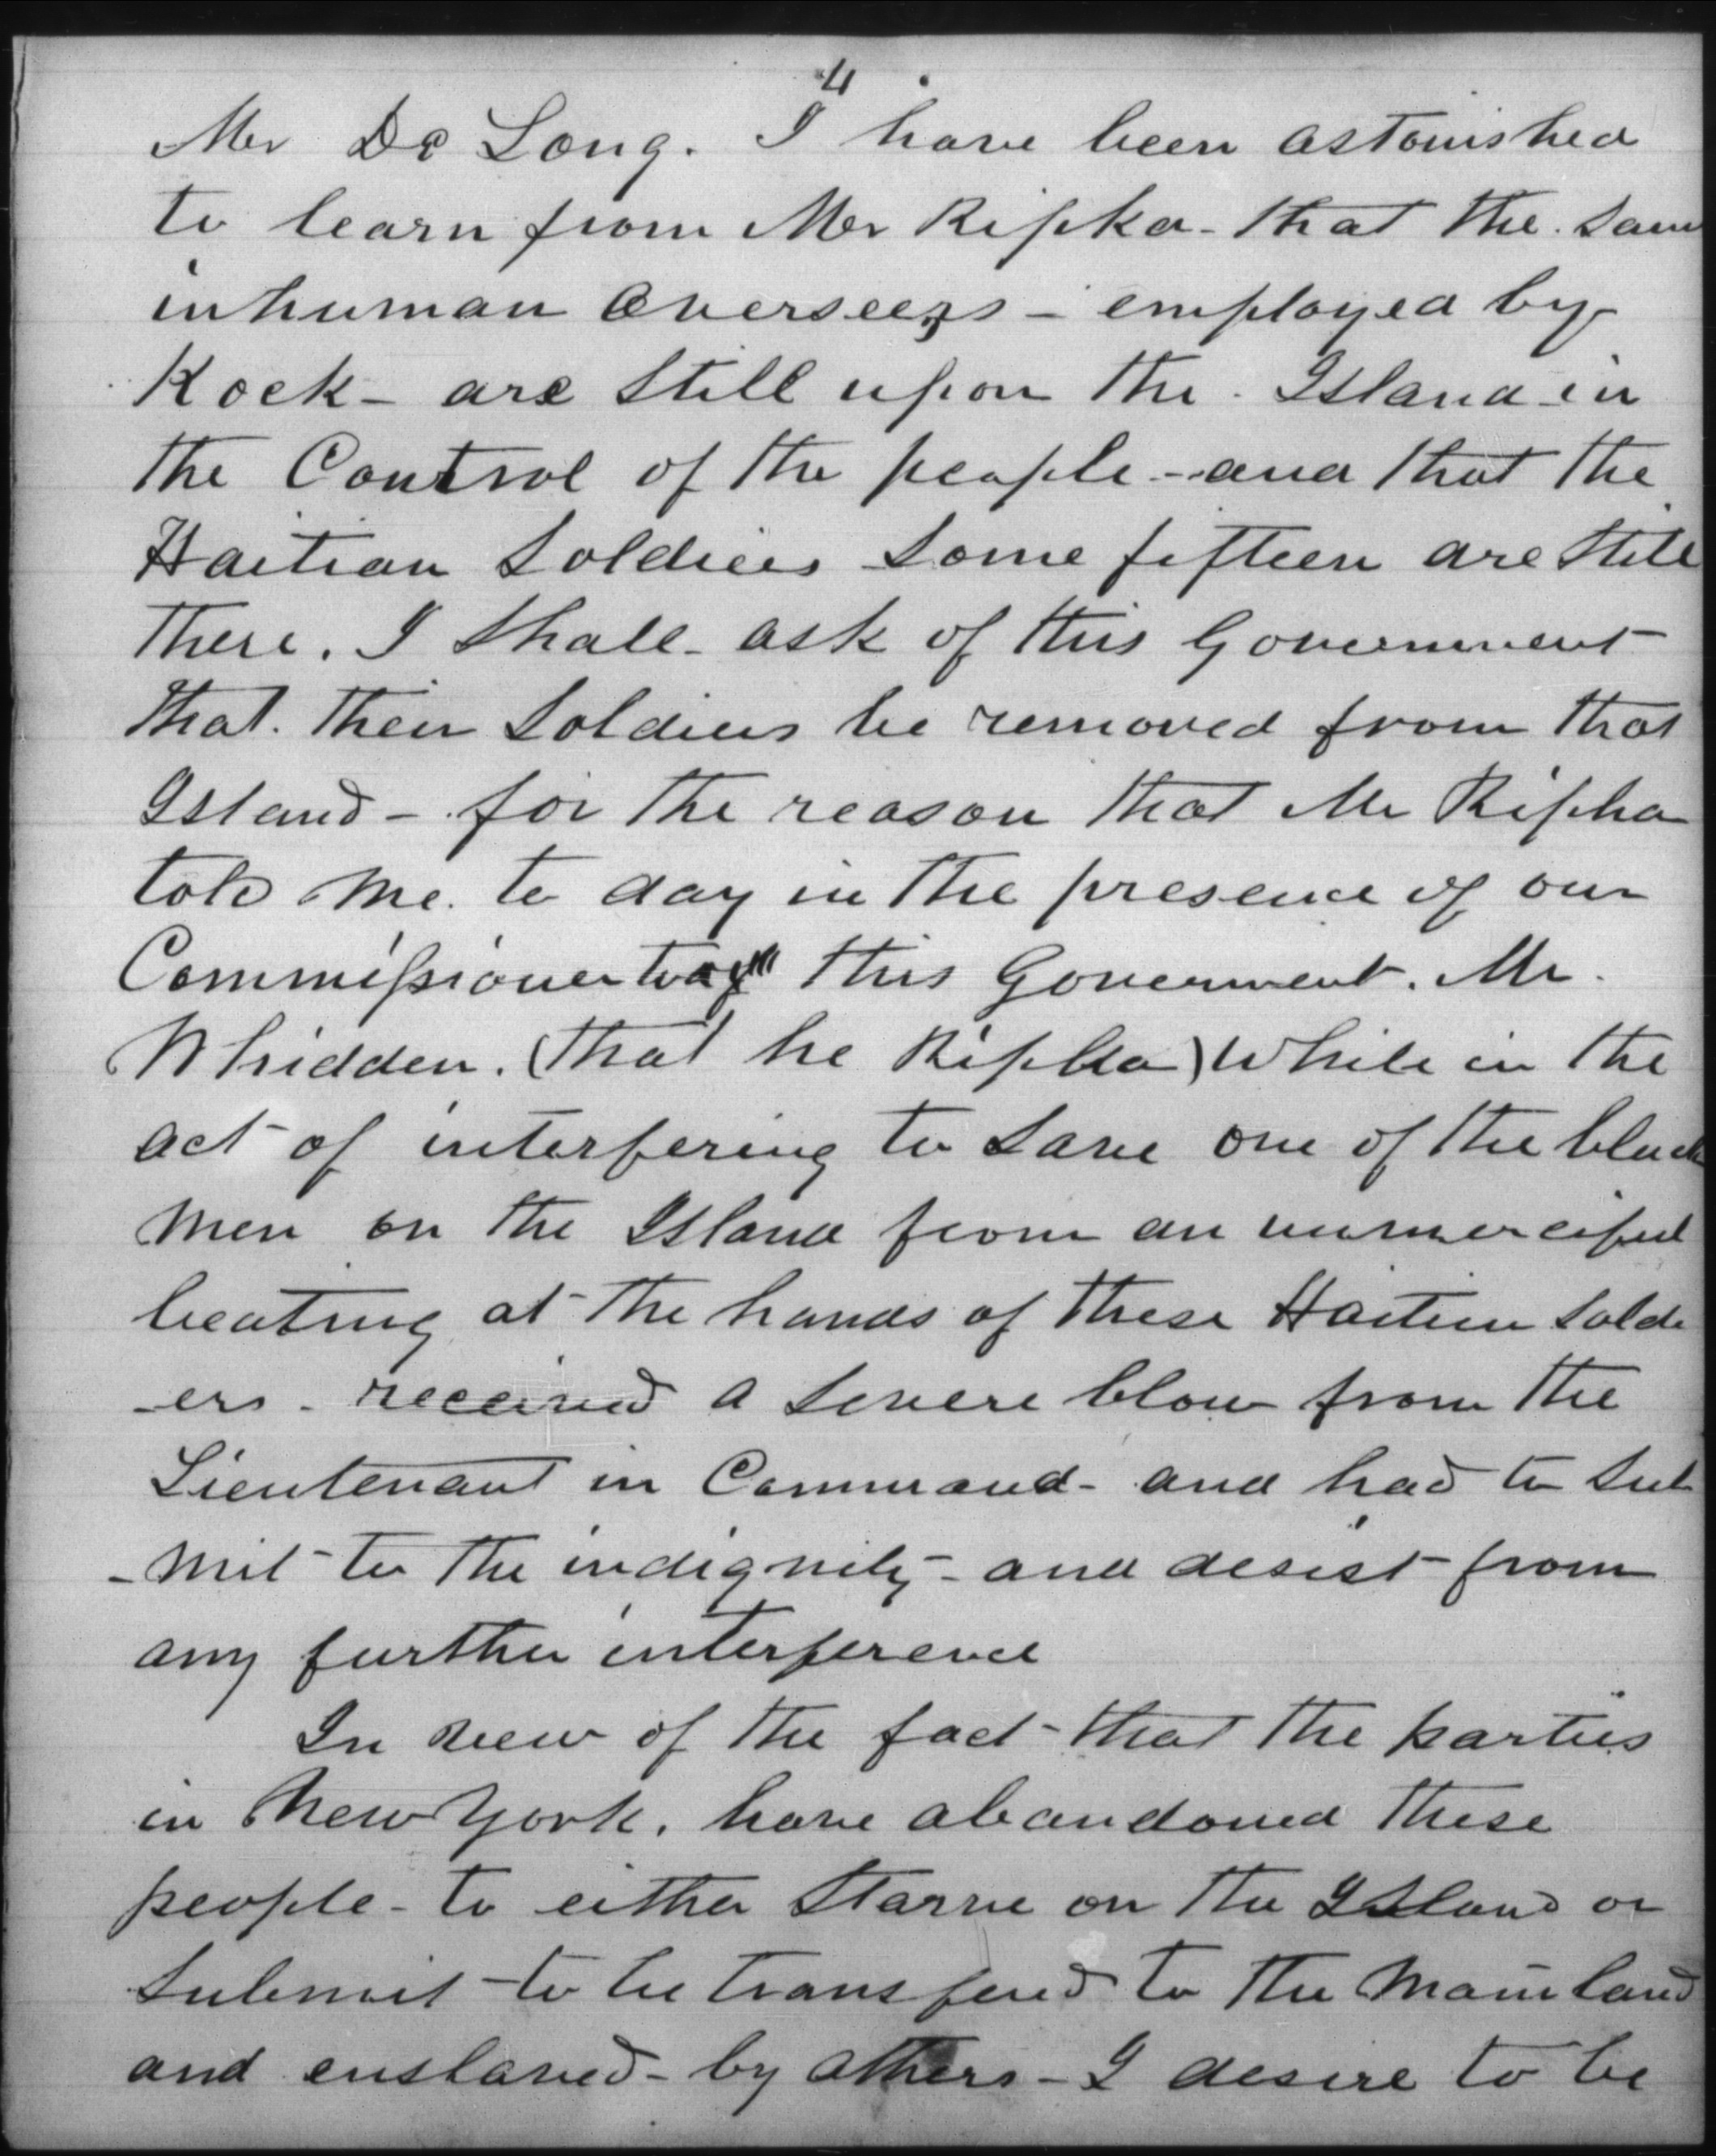 4
Mr De Long. I have been astonished
to learn from Mr Ripka - that the same
inhuman Overseers - employed by
Kock - are still upon the Island - in
the Control of the people - and that the
Haitian Soldiers some fifteen are still
there. I shall ask of this Government
that their Soldiers be removed from that
Island - for the reason that Mr Ripka
told me to day in the presence of our
Commissioner to this Goverment. Mr.
Whidden. (that he Ripka) while in the
act of interfering to save one of the black
men on the Island from an unmerciful
beating at the hands of these Haitien Soldi
-ers - received a severe blow from the
Lieutenant in Command - and had to sub
-mit - to the indignity - and desist from
any further interference
In view of the fact - that the parties
in New York, have abandoned these
people - to either starve on the Island or
submit - to be transfered to the Mainland
and enslaved - by others - I desire to be